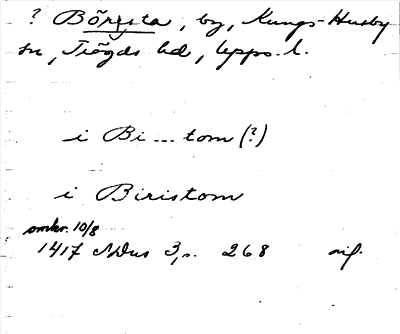 ? Börsta, by, Kungs-Husby
sn, Trögds hd, Upps. l.
i Bi...tom (?)
i Biristom
omkr. 10/8
1417 SDns 3, s. 268